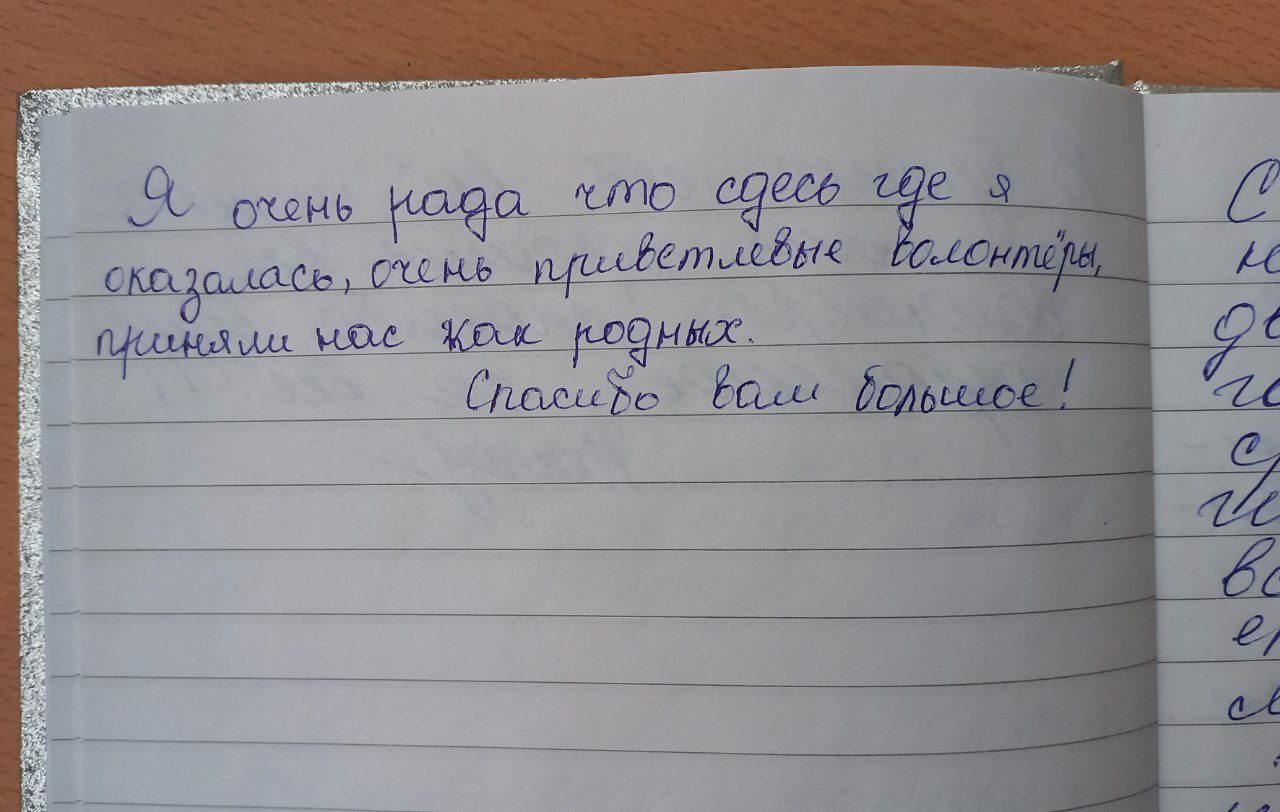 Я очень рада что сдесь где я
оказалась, очень приветлевые волонтёры,
приняли нас как родных.
Спасибо вам большое!